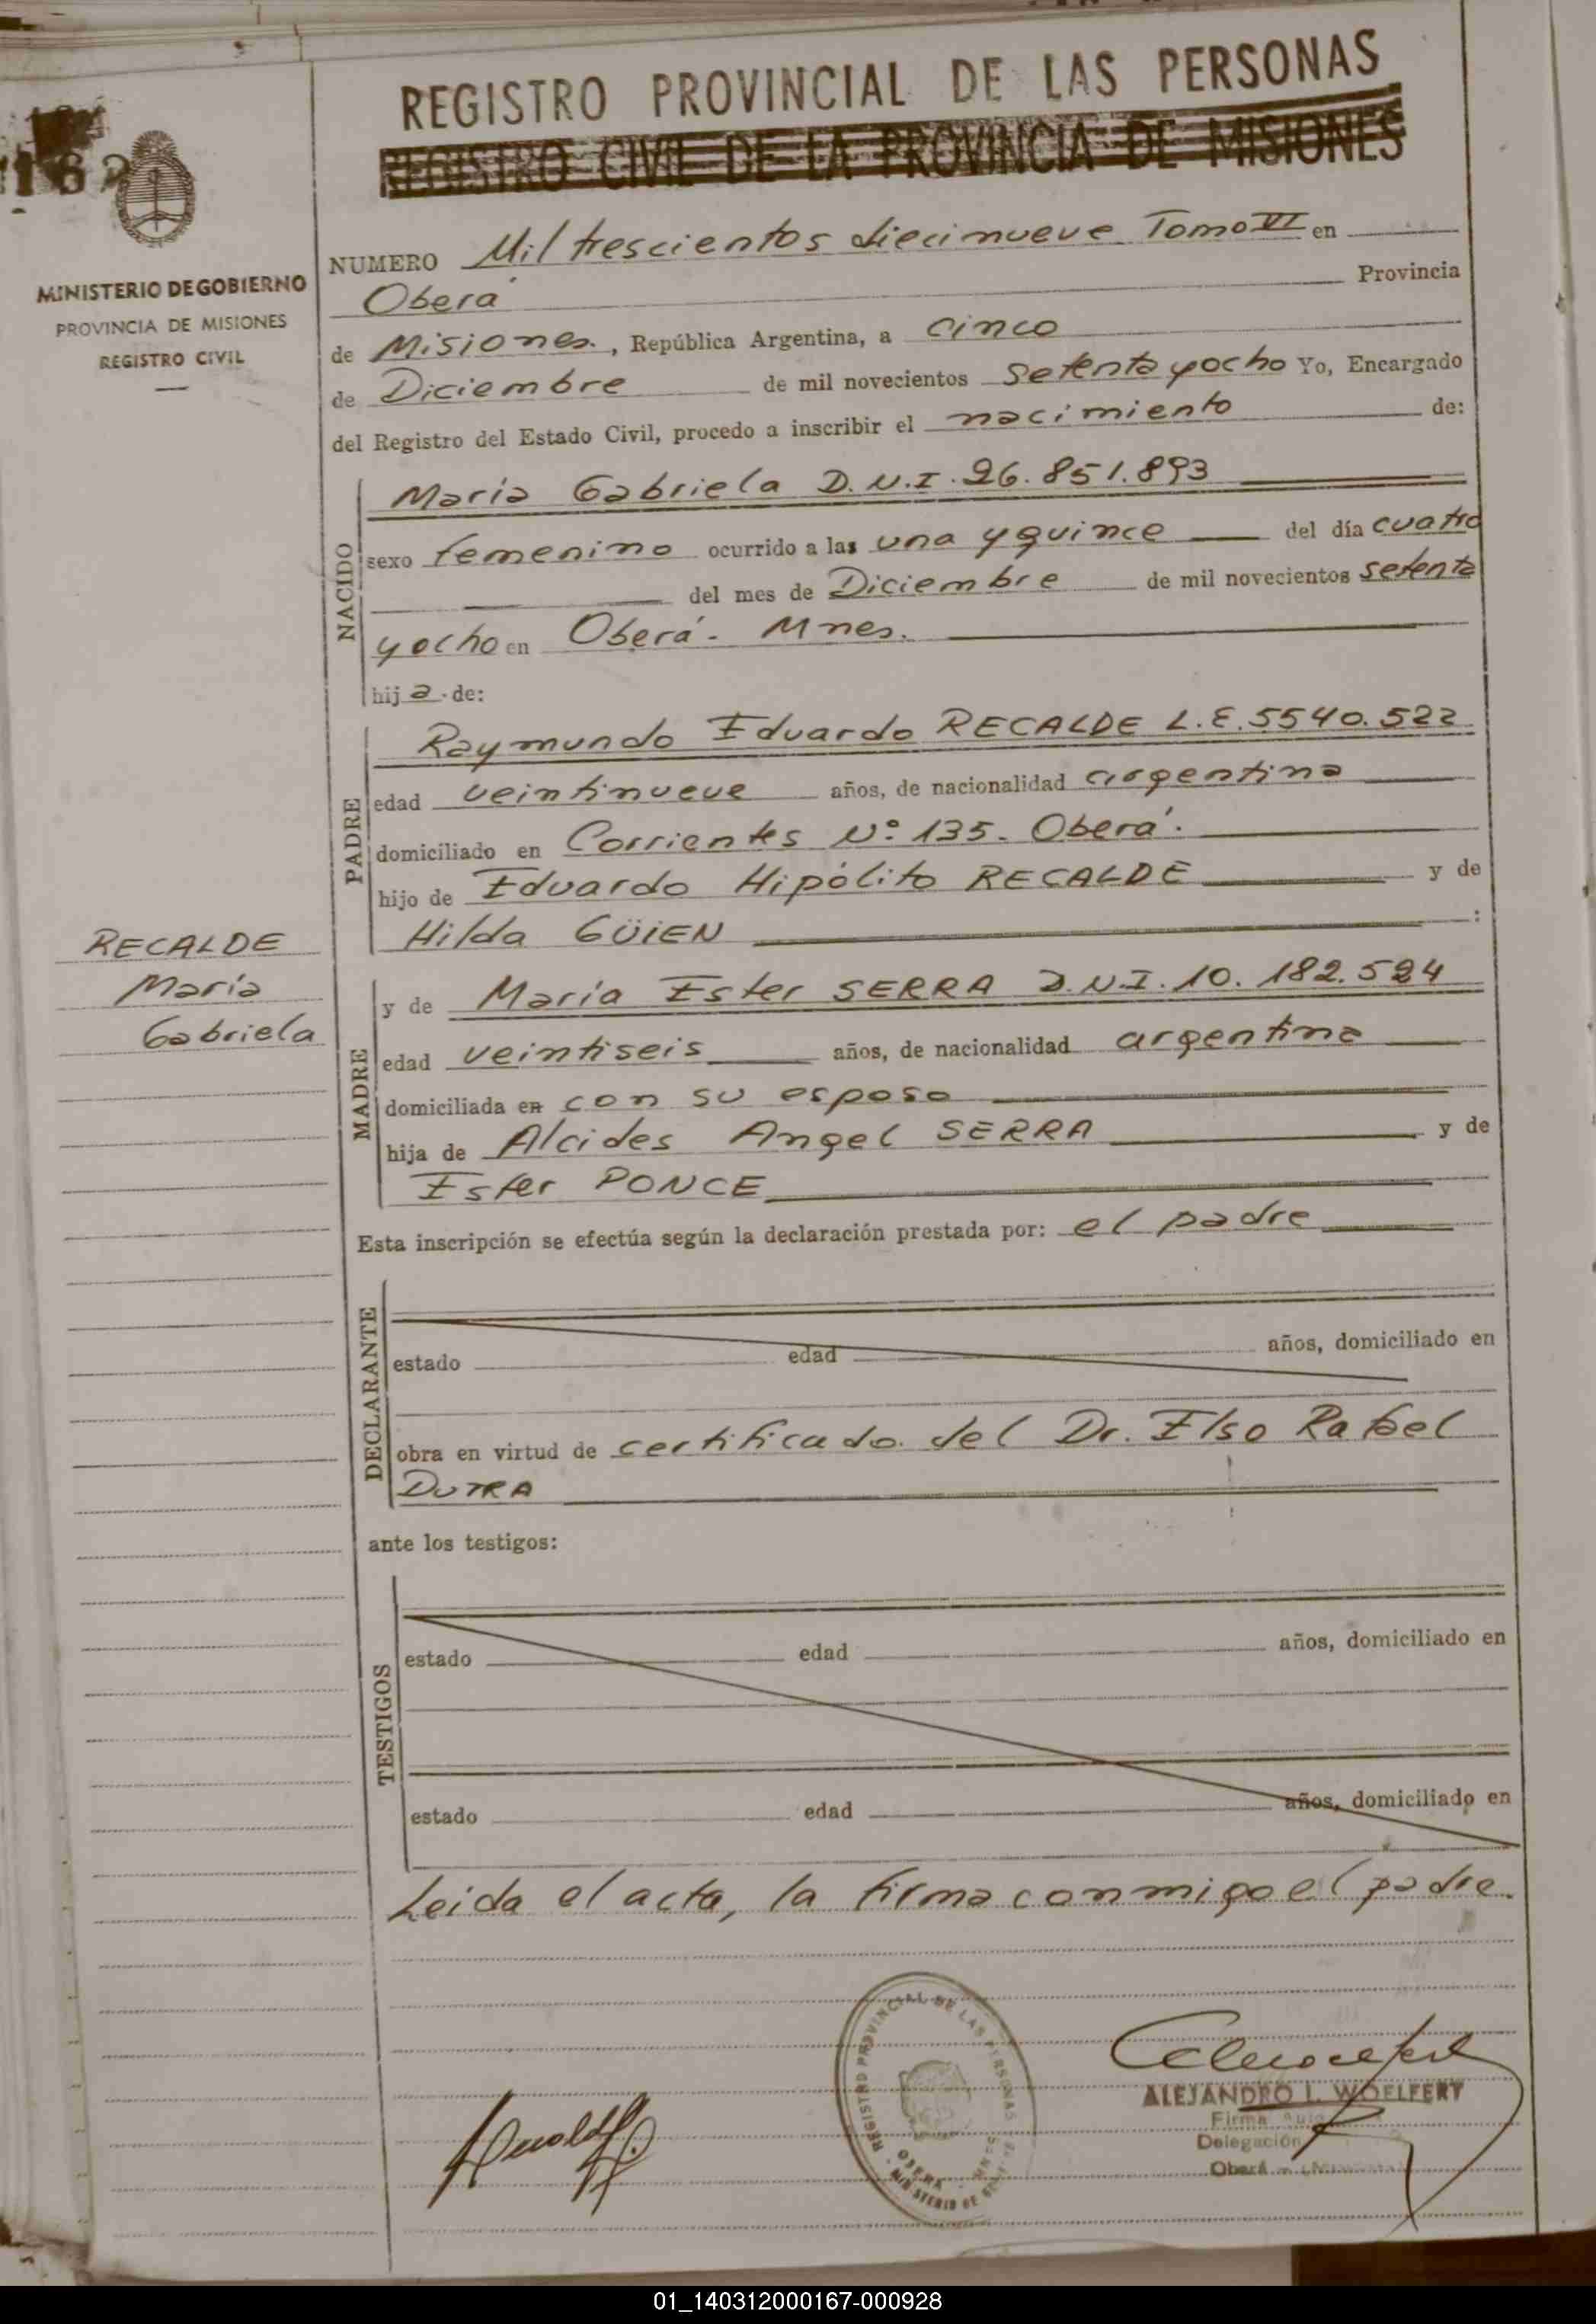 REGISTRO PROVINCIAL DE LAS PERSONAS
REGISTRO CIVIL DE LA PROVINCIA DE MISIONES
162
MINISTERIO DE GOBIERNO
PROVINCIA DE MISIONES
REGISTRO CIVIL
NUMERO Mil trescientos diecinueve Tomo VI en
Oberá Provincia
de Misiones, República Argentina, a cinco
de Diciembre de mil novecientos setenta y ocho Yo, Encargado
del Registro del Estado Civil, procedo a inscribir el nacimiento de:
NACIDO
María Gabriela D.N.I. 26.851.893
sexo femenino ocurrido a las una y quince del día cuatro
del mes de Diciembre de mil novecientos setenta
y ocho en Oberá. Mnes.
hija de:
PADRE
Raymundo Eduardo RECALDE L.E. 5540.522
edad veintinueve años, de nacionalidad argentina
domiciliado en Corrientes Nº 135. Oberá.
hijo de Eduardo Hipólito RECALDE y de
Hilda GÜIEN :
RECALDE
María
Gabriela
MADRE
y de María Ester SERRA D.N.I. 10.182.524
edad veintiseis años, de nacionalidad argentina
domiciliada en con su esposo
hija de Alcides Angel SERRA y de
Ester PONCE
Esta inscripción se efectúa según la declaración prestada por: el padre
DECLARANTE
estado edad años, domiciliado en
obra en virtud de certificado del Dr. Elso Rafael
DUTRA
ante los testigos:
TESTIGOS
estado edad años, domiciliado en
estado edad años, domiciliado en
Leida el acta, la firma conmigo el padre.
REGISTRO PROVINCIAL DE LAS PERSONAS
OBERA
MINISTERIO DE
ALEJANDRO L. WOELFERT
Firma
Delegación
Oberá
01_140312000167-000928